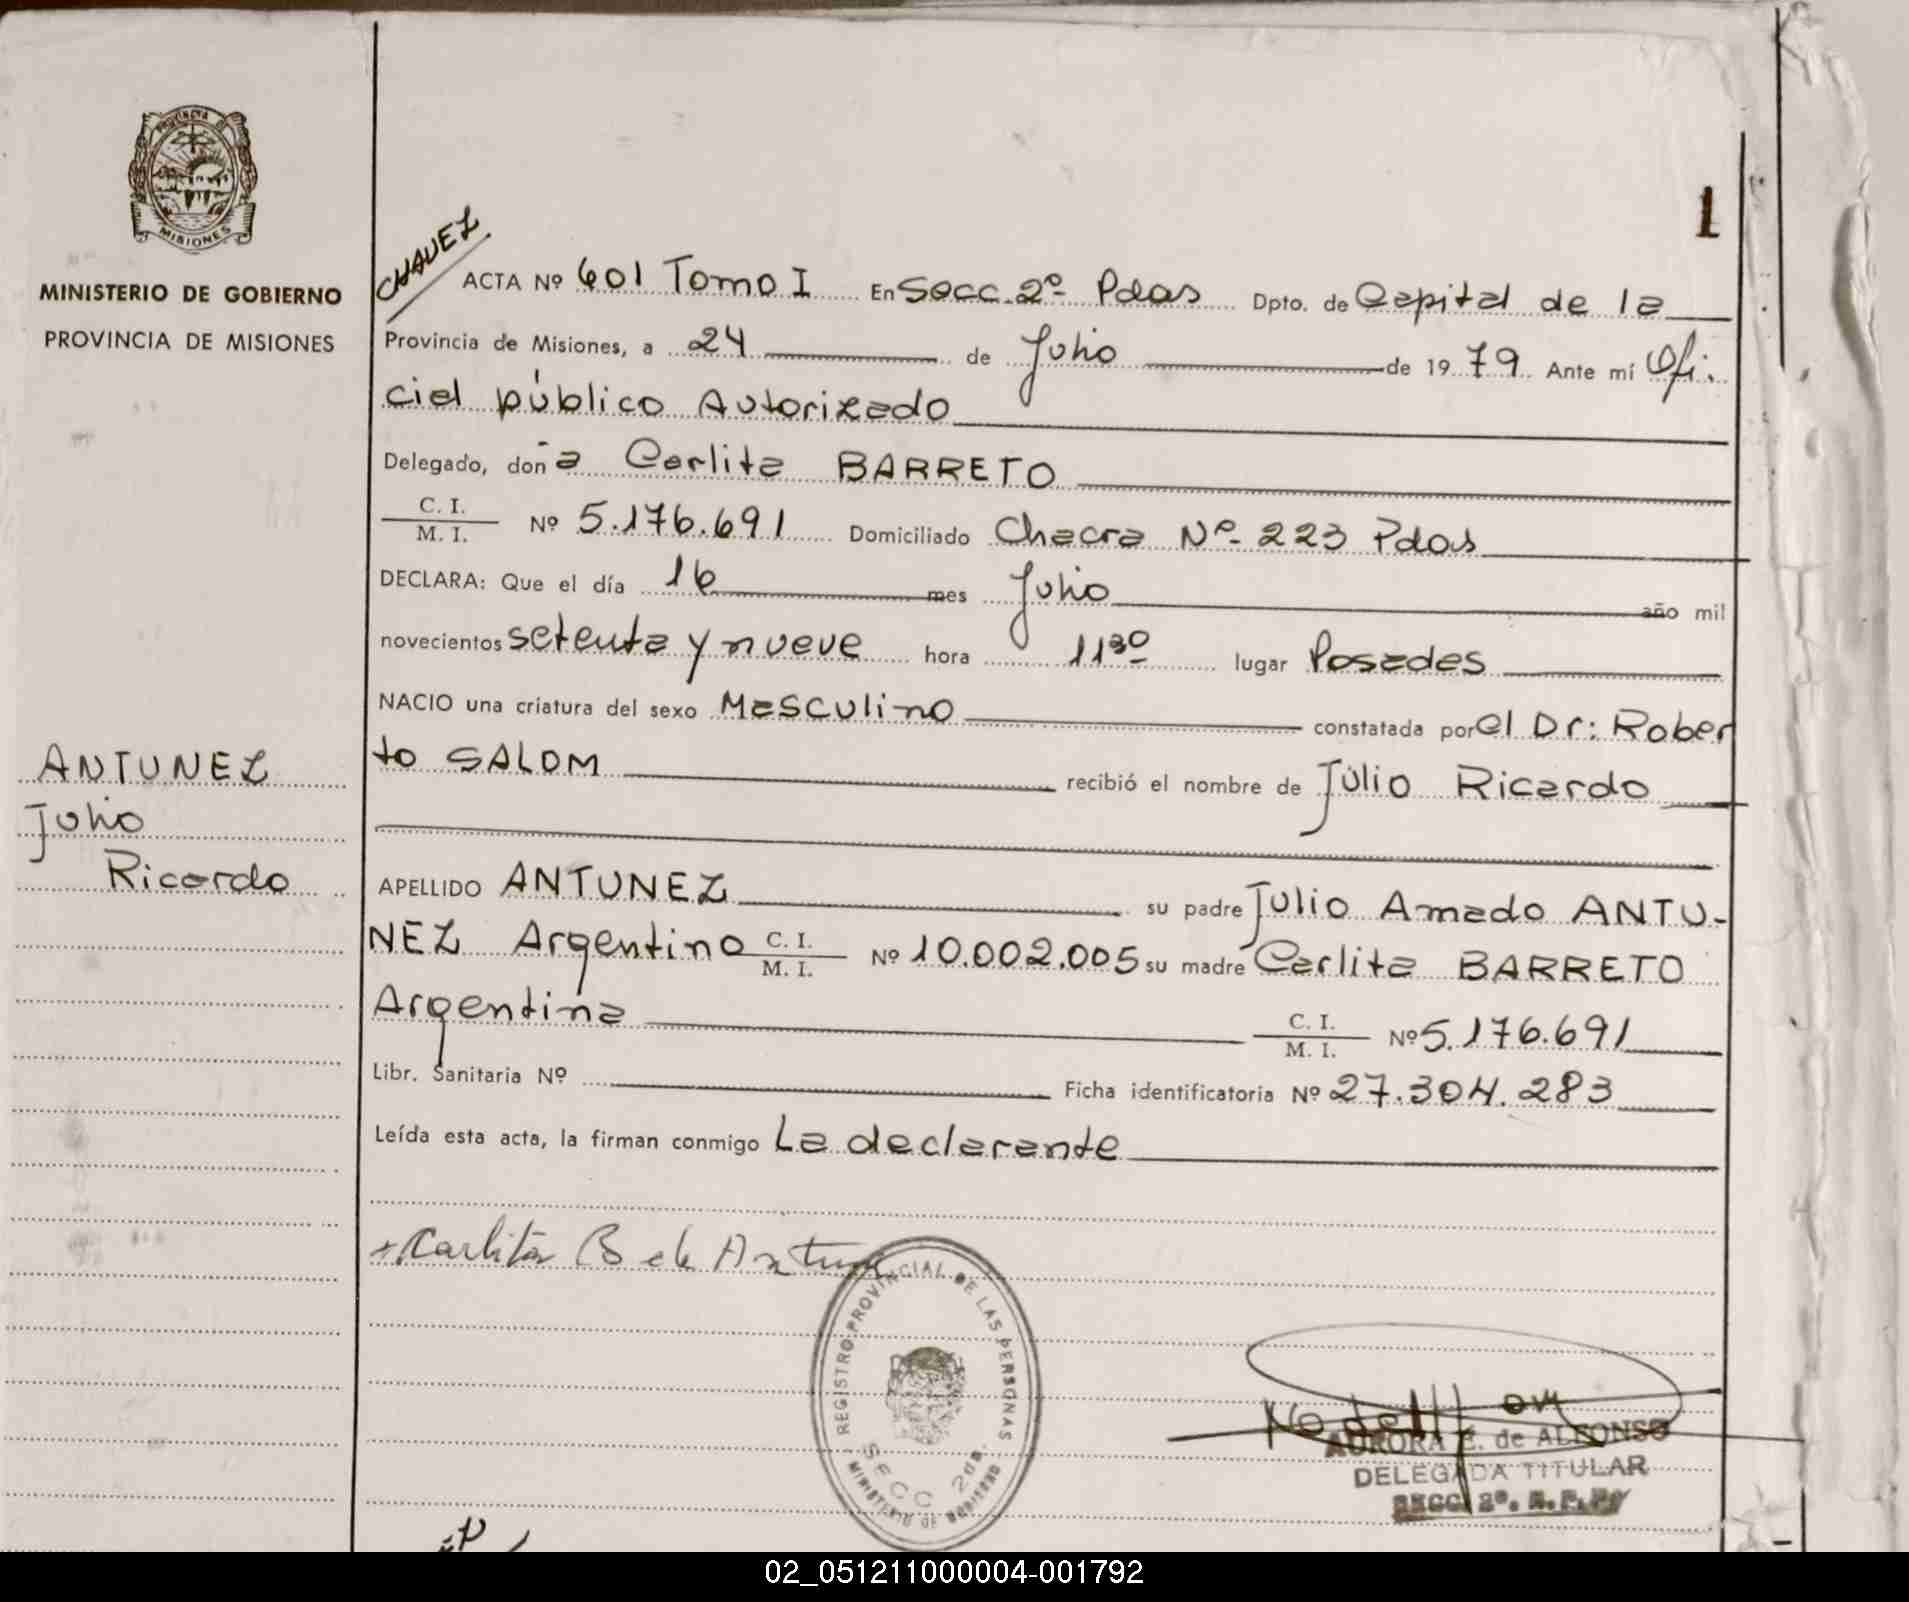 PROVINCIA DE
MISIONES
MINISTERIO DE GOBIERNO
PROVINCIA DE MISIONES
ANTUNEZ
Julio
Ricardo
1
CHAVEZ
ACTA Nº 601 Tomo I En Secc. 2º Pdas Dpto. de Capital de la
Provincia de Misiones, a 24 de Julio de 1979. Ante mí Ofi.
cial público Autorizado
Delegado, doña Carlita BARRETO
C. I.
M. I. Nº 5.176.691 Domiciliado Chacra Nº 223 Pdas
DECLARA: Que el día 16 mes Julio año mil
novecientos setenta y nueve hora 11 30 lugar Posadas
NACIO una criatura del sexo Masculino constatada por el Dr: Rober
to SALOM recibió el nombre de Julio Ricardo
APELLIDO ANTUNEZ su padre Julio Amado ANTU-
NEZ Argentino C. I. M. I. Nº 10.002.005 su madre Carlita BARRETO
Argentina C. I. M. I. Nº 5.176.691
Libr. Sanitaria Nº Ficha identificatoria Nº 27.304.283
Leída esta acta, la firman conmigo La declarante
Carlita B de Antunez
REGISTRO PROVINCIAL DE LAS PERSONAS
SECC 2da.
MINISTERIO DE GOBIERNO
AURORA E. de ALFONSO
DELEGADA TITULAR
SECC. 2º. R. P. P.
02_051211000004-001792